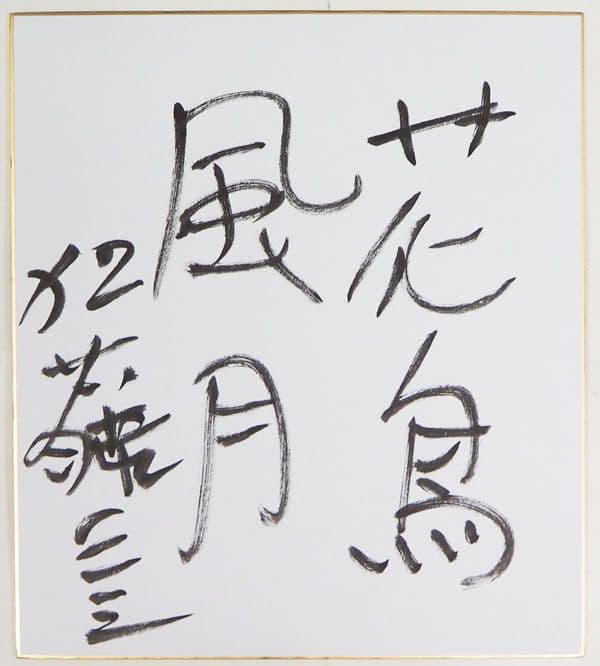 花鳥
風月
加藤一二三